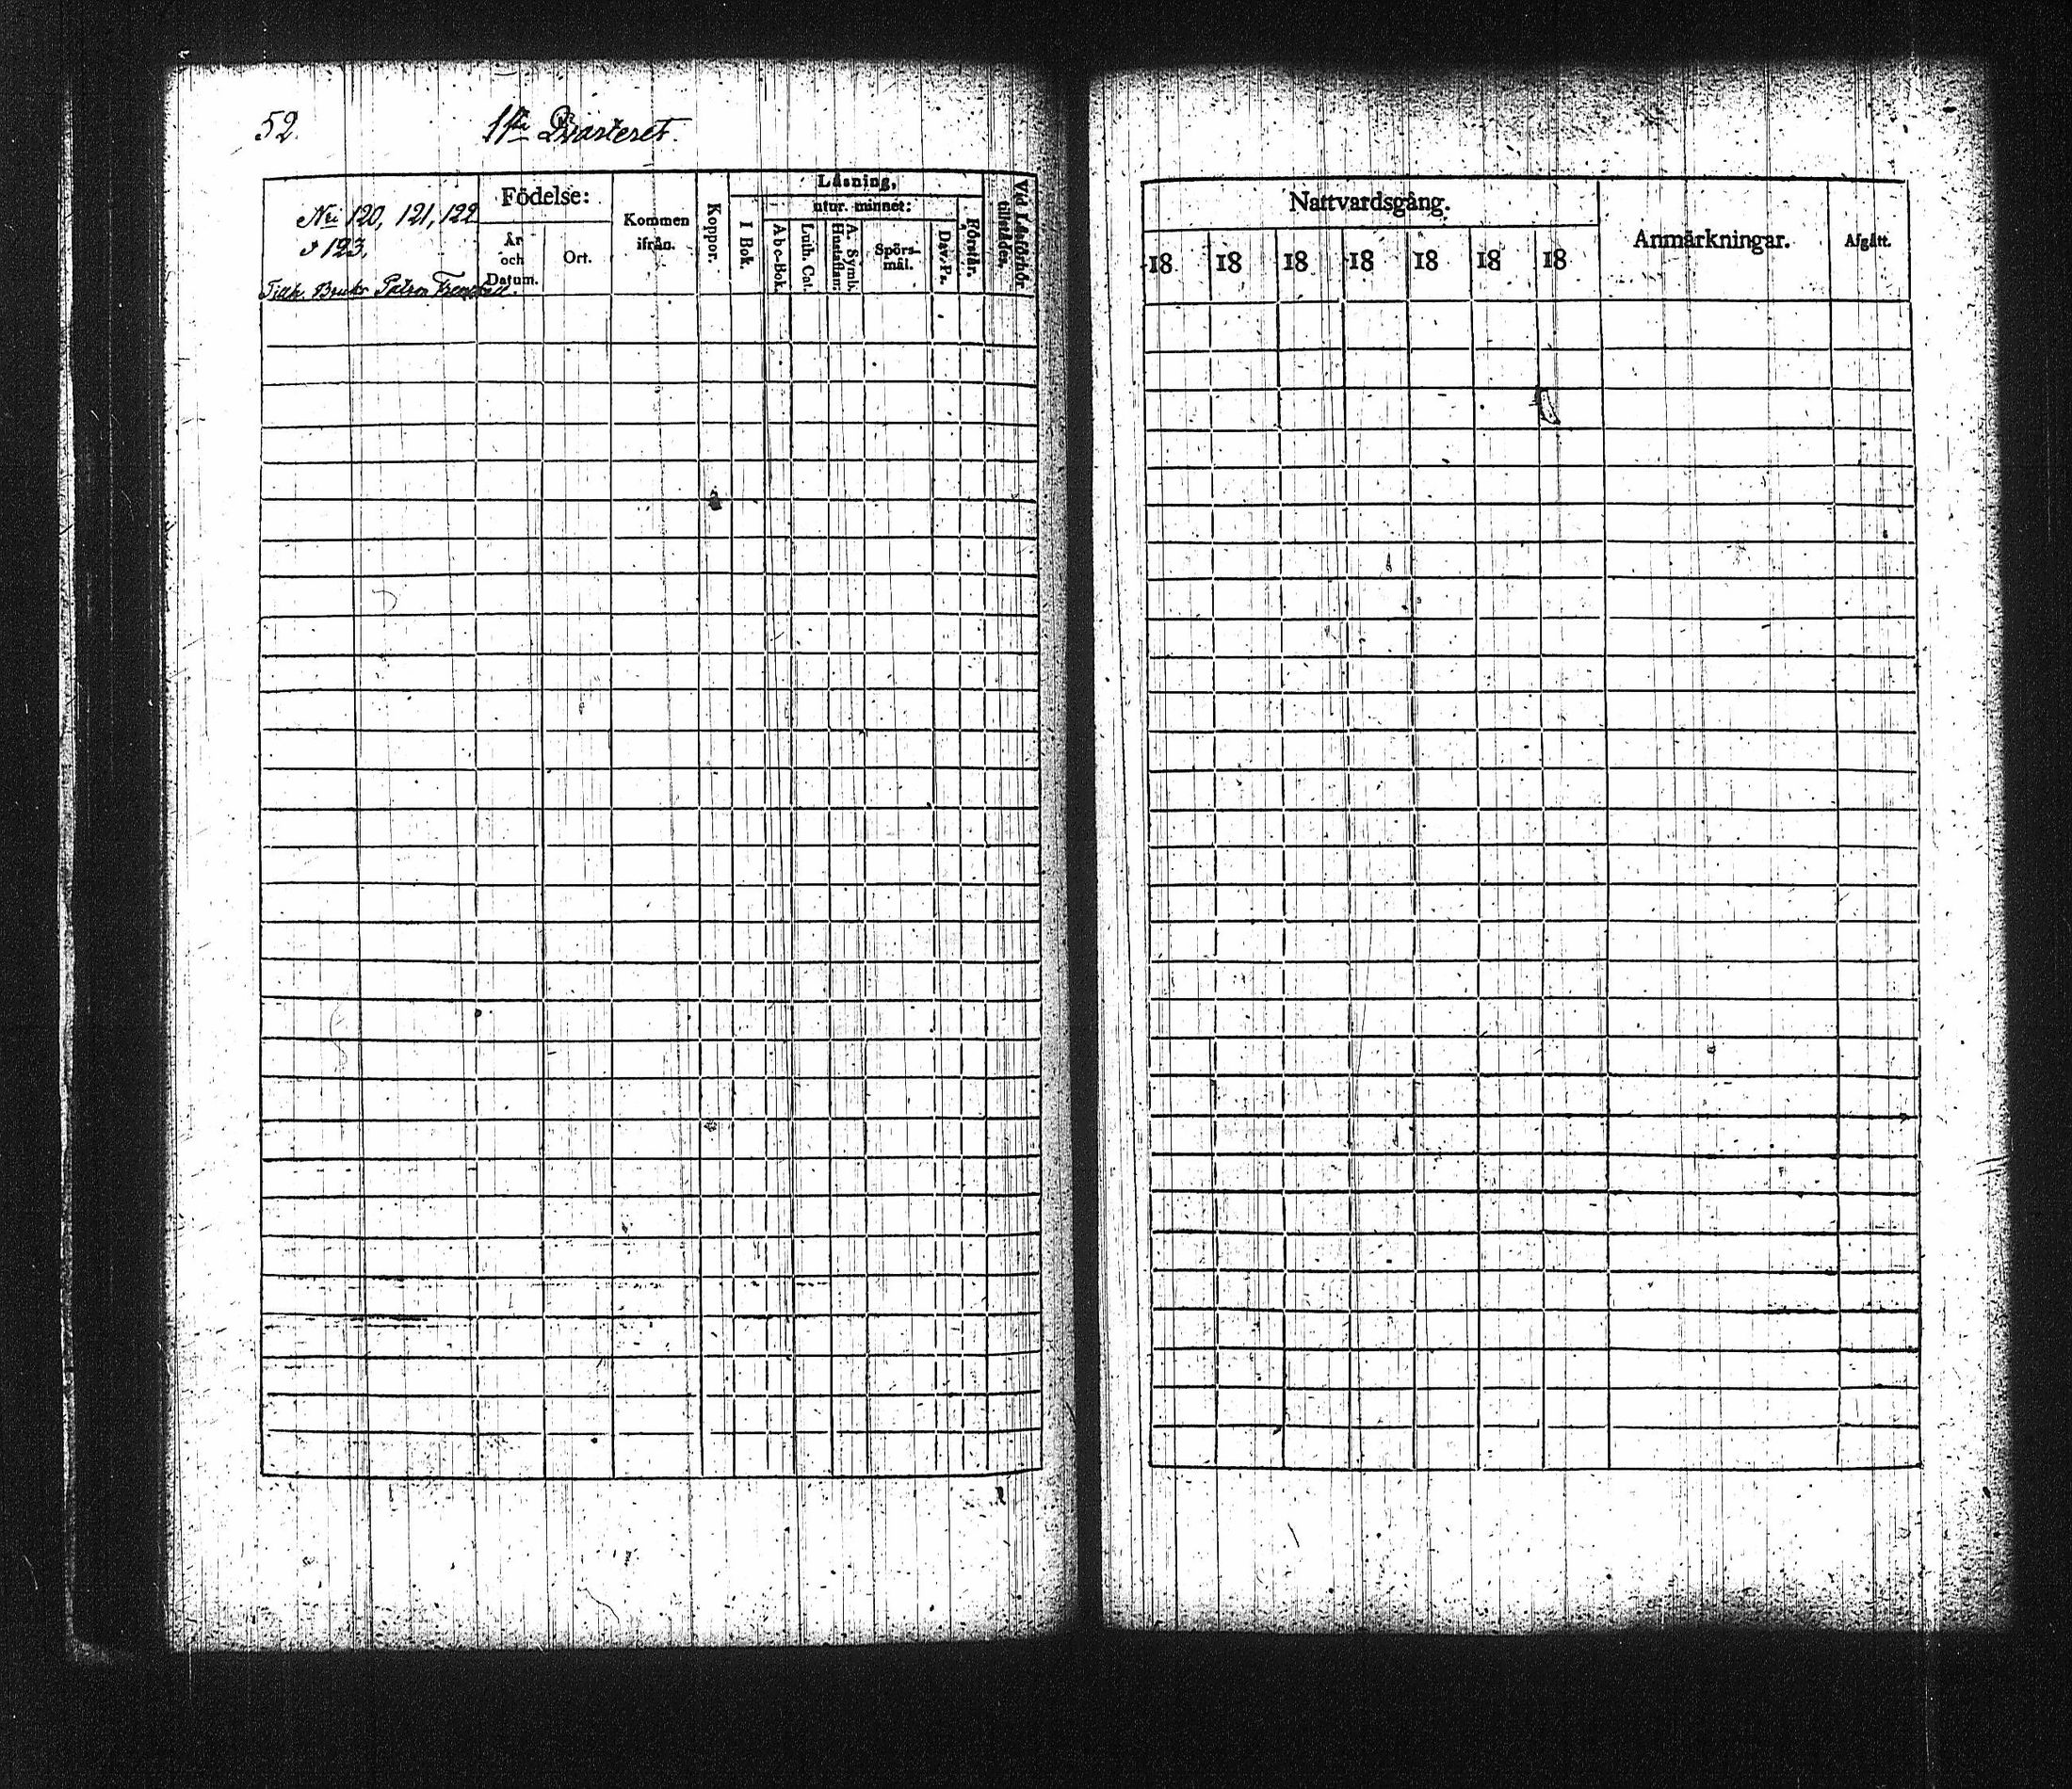 52.
1sta Qvarteret.
Nri 120, 121, 122
& 123.
Tillh. Bruks Patron Frenckell.
Födelse:
År
och
Datum.
Ort.
Kommen
ifrån.
Koppor.
Läsning,
utur minnet:
I Bok.
Abc-Bok.
Luth. Cat.
Hustaflan.
A. Symb.
Spörs-
mål.
Dav. Ps.
Förstår.
Vid Läsförhör
tillstädes.
Nattvardsgång.
18 18 18 18 18 18 18
Anmärkningar.
Afgått.